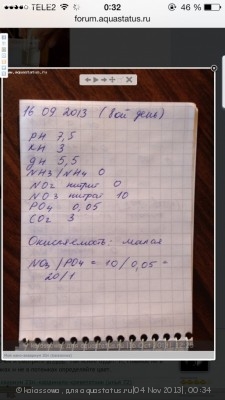 TELE2 0:32 46 %
forum.aquastatus.ru
www.aquastatus.ru
16 09 2013 (8ой день)
PH 7,5
KH 3
GH 5,5
NH3/NH4 0
NO2 нитрит 0
NO3 нитрат 10
PO4 0,05
CO2 3
Окисляемость: малая
NO3/PO4 = 10/0,05 =
20/1
© kaiassowa , для aquastatus.ru|04 Nov 2013|, 00:34